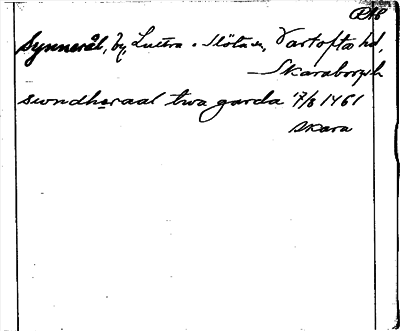 RAP
Synnerål, by, Luttra o. Slöta sn, Vartofta hd,
Skaraborgs l.
swndheraal twa garda 17/8 1461
Skara